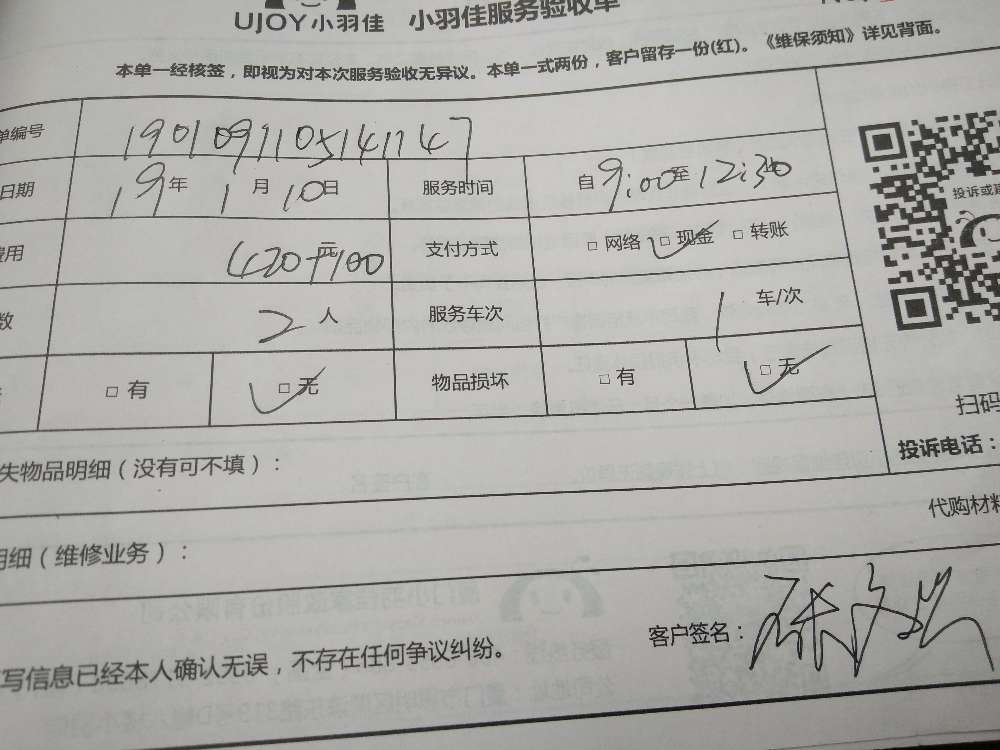 UJOY小羽佳 小羽佳服务验收单
本单一经核签，即视为对本次服务验收无异议。本单一式两份，客户留存一份(红)。《维保须知》详见背面。
单编号 1901091105141747
日期 19年1月10日 服务时间 自9:00至12:30
费用 420+100元 支付方式 □网络 □现金 □转账
数 2人 服务车次 1车/次
□有 □无 物品损坏 □有 □无
投诉或建
扫码
投诉电话：
失物品明细（没有可不填）：
代购材料
明细（维修业务）：
客户签名：
写信息已经本人确认无误，不存在任何争议纠纷。